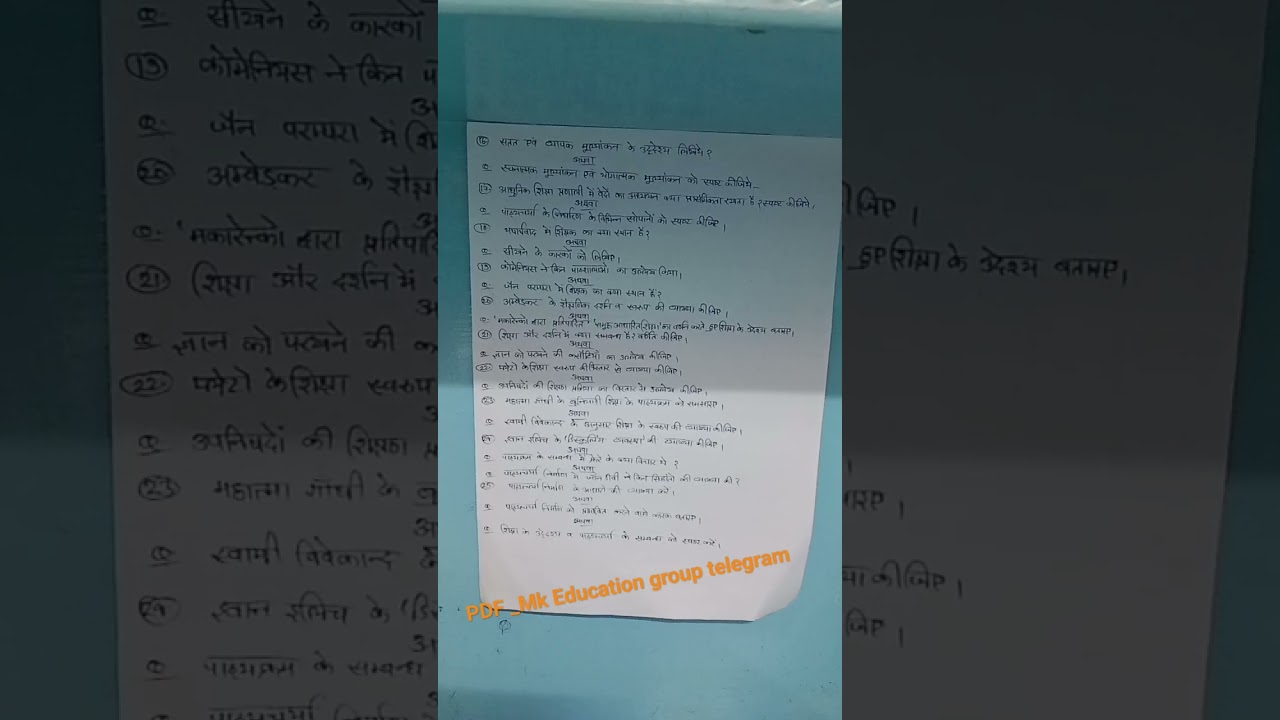 (16) सतत एवं व्यापक मूल्यांकन के उद्देश्य लिखिये ?
अथवा
Q रचनात्मक मूल्यांकन एवं योगात्मक मूल्यांकन को स्पष्ट कीजिये -
(17) आधुनिक शिक्षा प्रणाली में वेदों का अध्ययन क्या प्रासंगिकता रखता है ? स्पष्ट कीजिये ,
अथवा
Q पाठ्यचर्या के निर्धारण के विभिन्न सोपानों को स्पष्ट कीजिए ।
(18) यथार्थवाद में शिक्षक का क्या स्थान है ?
अथवा
Q सीखने के कारकों को लिखिए ।
(19) कोमेनियस ने किन का उल्लेख किया ।
अथवा
Q जैन परम्परा में शिक्षक का क्या स्थान है ?
(20) अम्बेडकर के शैक्षिक दर्शन व स्वरूप की व्याख्या कीजिए ।
अथवा
Q. 'मकारेन्को द्वारा प्रतिपादित 'समूह आधारित शिक्षा' का वर्णन करते हुए शिक्षा के उद्देश्य बताइए ।
(21) शिक्षा और दर्शन में क्या सम्बन्ध है ? वर्णन कीजिए ।
अथवा
Q ज्ञान को परखने की कसौटियों का उल्लेख कीजिए ।
(22) प्लेटो के शिक्षा स्वरूप की विस्तार से व्याख्या कीजिए ।
अथवा
Q उपनिषदों की शिक्षण प्रक्रिया का विस्तार से उल्लेख कीजिए ।
(23) महात्मा गाँधी के बुनियादी शिक्षा के पाठ्यक्रम को समझाइए ।
अथवा
Q स्वामी विवेकान्द के अनुसार शिक्षा के स्वरूप की व्याख्या कीजिए ।
(24) इवान इलिच के 'डिस्कूलिंग व्यवस्था' की व्याख्या कीजिए ।
अथवा
Q पाठ्यक्रम के सम्बन्ध में के क्या विचार थे ?
अथवा
Q पाठ्यचर्या निर्माण में जॉन डीवी ने किन सिद्धांतों की व्याख्या की ?
(25) पाठ्यचर्या निर्माण के आधारों की व्याख्या करें ।
अथवा
Q पाठ्यचर्या निर्माण को प्रभावित करने वाले कारक बताइए ।
अथवा
Q शिक्षा के उद्देश्य व पाठ्यचर्या के सम्बन्ध को स्पष्ट करें ।
PDF _Mk Education group telegram